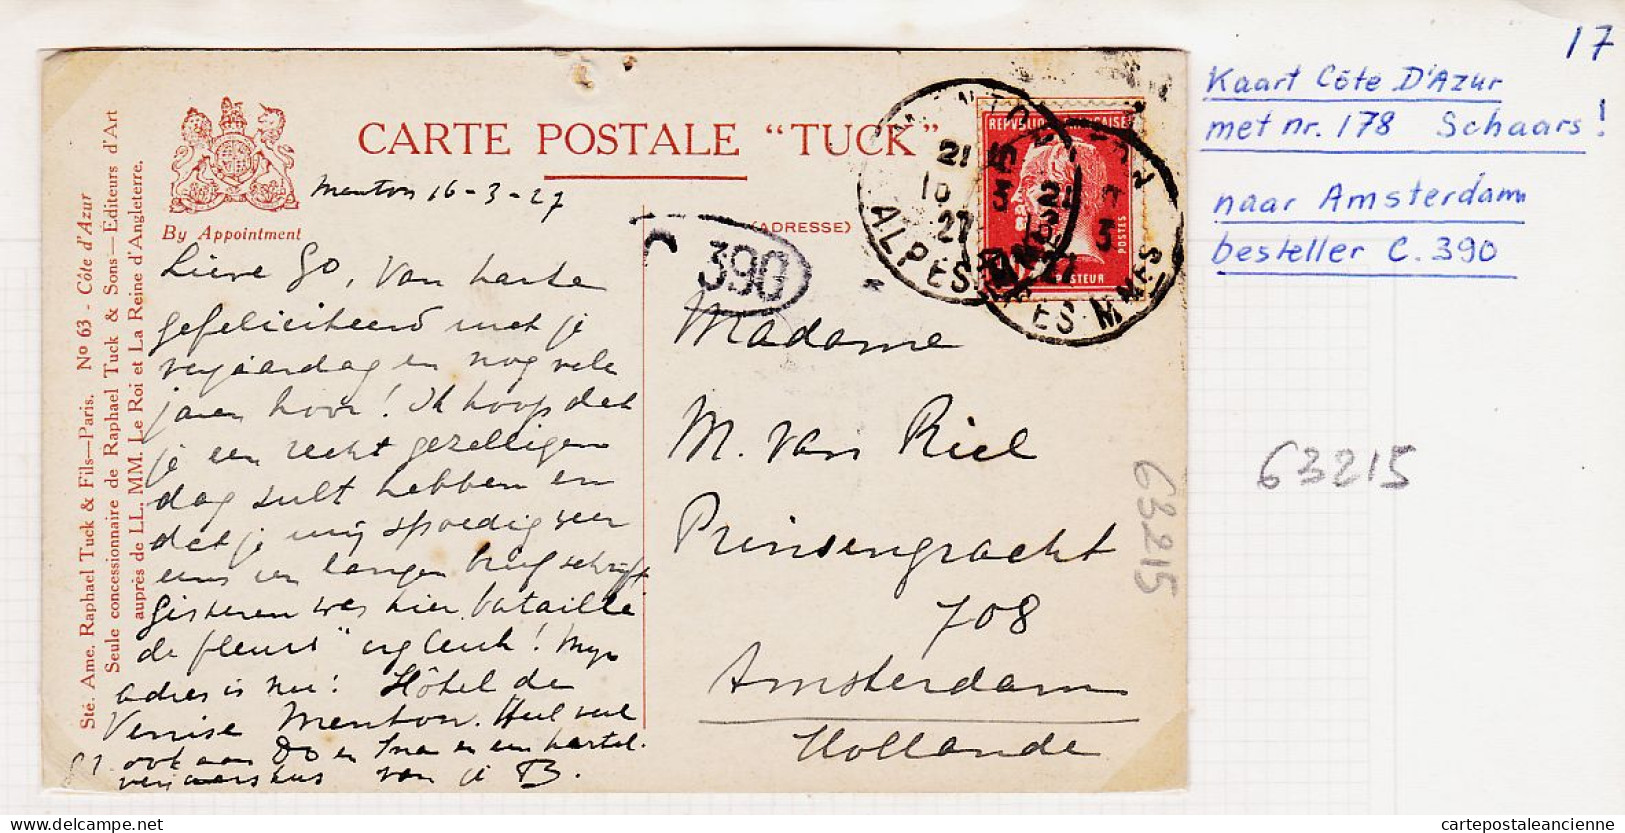 17
Kaart Côte D'Azur
met nr. 178 Schaars!
naar Amsterdam
besteller C. 390
63215
CARTE POSTALE “TUCK”
By Appointment
(ADRESSE)
Sté. Ame. Raphael Tuck & Fils—Paris. No 63 - Côte d'Azur
Seule concessionnaire de Raphael Tuck & Sons—Editeurs d'Art
auprès de LL. MM. Le Roi et La Reine d'Angleterre.
390
REPVBLIQVE FRANCAISE
POSTES
PASTEUR
MENTON
21
16
3
27
ALPES MMES
Menton 16-3-27
Lieve Go, Van harte
gefeliciteerd met je
verjaardag en nog vele
jaren hoor! Ik hoop dat
je een recht gezelligen
dag zult hebben en
dat je mij spoedig weer
eens een langen brief schrijft
Gisteren was hier "bataille
de fleurs" erg leuk! Mijn
adres is nu: Hôtel de
Venise Menton. Heel veel
ook aan Do en Ina en een hartel.
van je B.
Madame
M. van Riel
Prinsengracht
708
Amsterdam
Hollande
63215
cartepostaleancienne